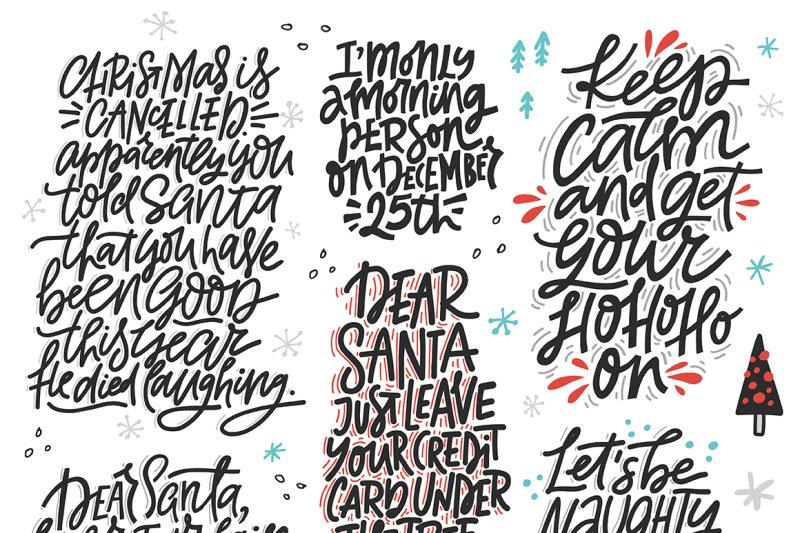 CHRiSTMAS iS
CANCELLED.
apparently you
told Santa
that you have
been GOOD
this year
He died laughing.
DEAR Santa,
I'M ONLY
a morning
PERSON
ON DECEMBER
25th
DEAR
SANTA
JUST LEAVE
YOUR CREDiT
CARD UNDER
THE TREE
Keep
calm
and get
your
HoHoHo
on
Let's be
NAUGHTY